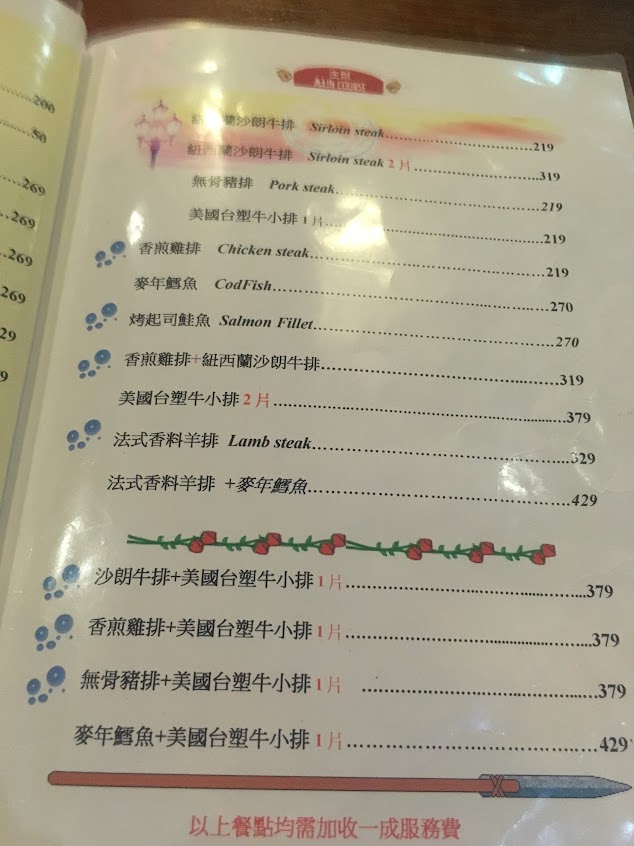 200
50
269
269
269
269
29
9
主餐
MAIN COURSE
紐西蘭沙朗牛排 Sirloin steak 219
紐西蘭沙朗牛排 Sirloin steak 2 片 319
無骨豬排 Pork steak 219
美國台塑牛小排 1 片 219
香煎雞排 Chicken steak 219
麥年鱈魚 CodFish 270
烤起司鮭魚 Salmon Fillet 270
香煎雞排+紐西蘭沙朗牛排 319
美國台塑牛小排 2 片 379
法式香料羊排 Lamb steak 329
法式香料羊排 +麥年鱈魚 429
沙朗牛排+美國台塑牛小排 1 片 379
香煎雞排+美國台塑牛小排 1 片 379
無骨豬排+美國台塑牛小排 1 片 379
麥年鱈魚+美國台塑牛小排 1 片 429
以上餐點均需加收一成服務費